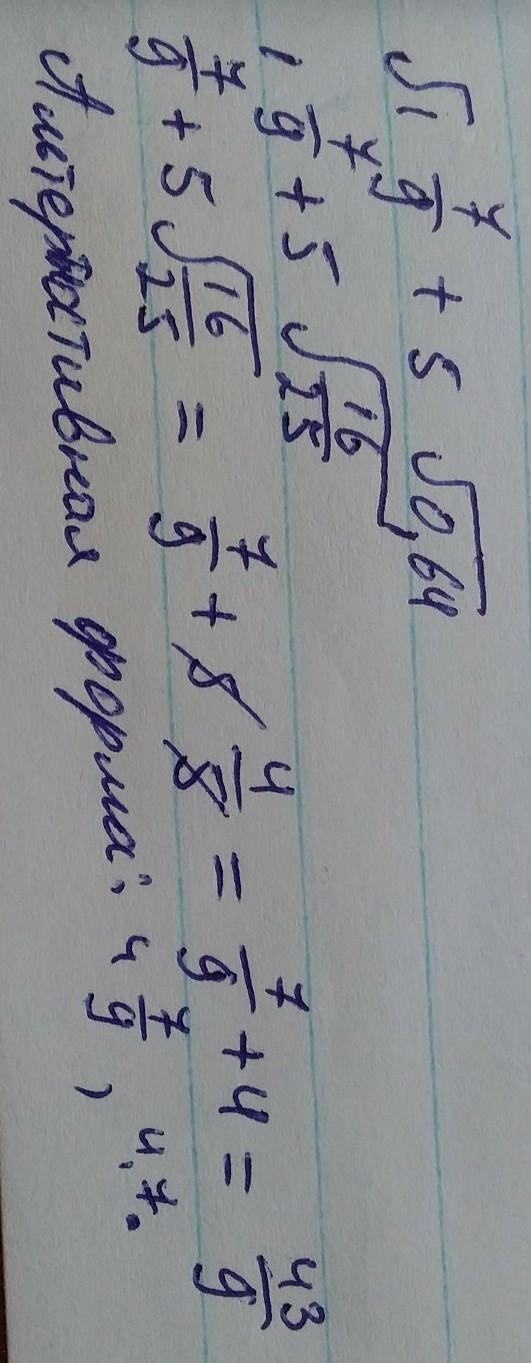 √1 7/9 + 5 √0,64
1 7/9 + 5 √16/25
7/9 + 5 √16/25 = 7/9 + 5 4/5 = 7/9 + 4 = 43/9
Альтернативная форма: 4 7/9, 4,7.